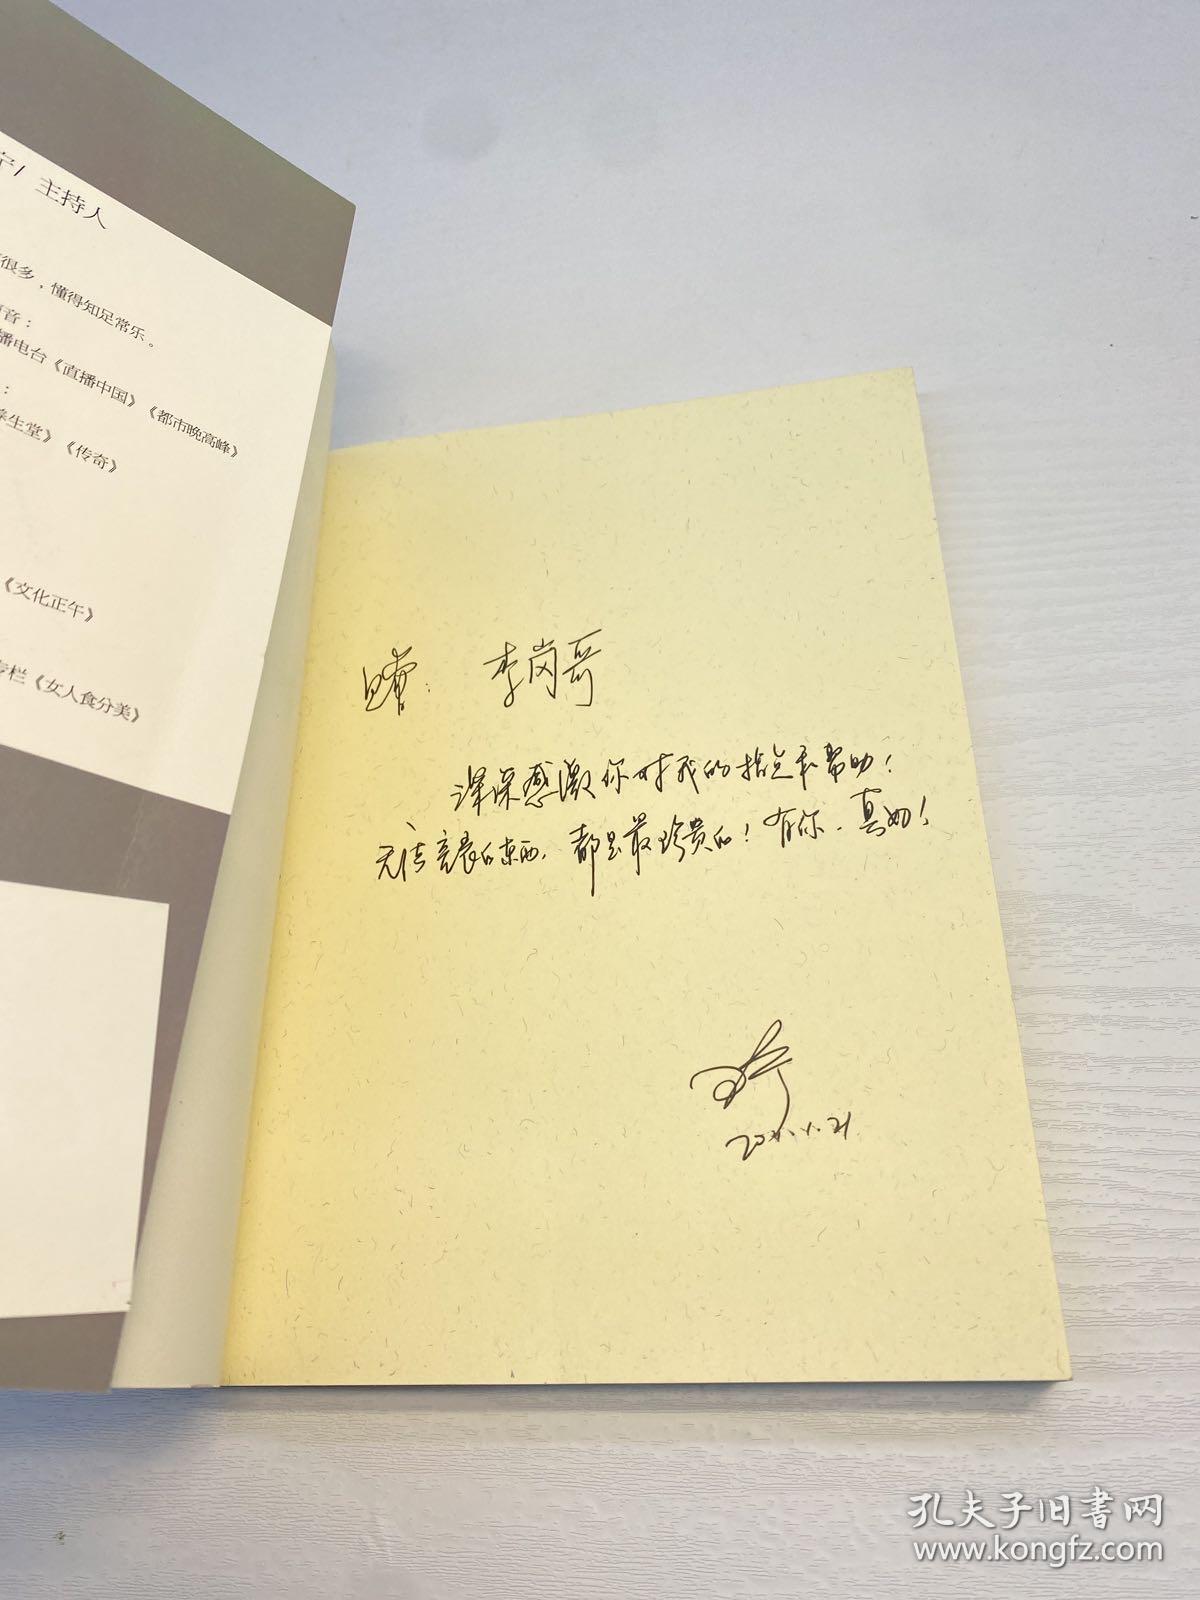 宁/ 主持人
很多，懂得知足常乐。
音：
播电台《直播中国》《都市晚高峰》
：
养生堂》《传奇》
《文化正午》
专栏《女人食分美》
李岗哥
深深感激你对我的指点和帮助！
无法言表的东西，都是最珍贵的！有你，真好！
孔夫子旧书网
www.kongfz.com